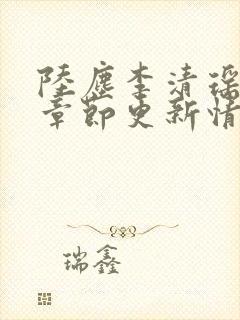 陸塵李清瑶
章節更新情
瑞鑫